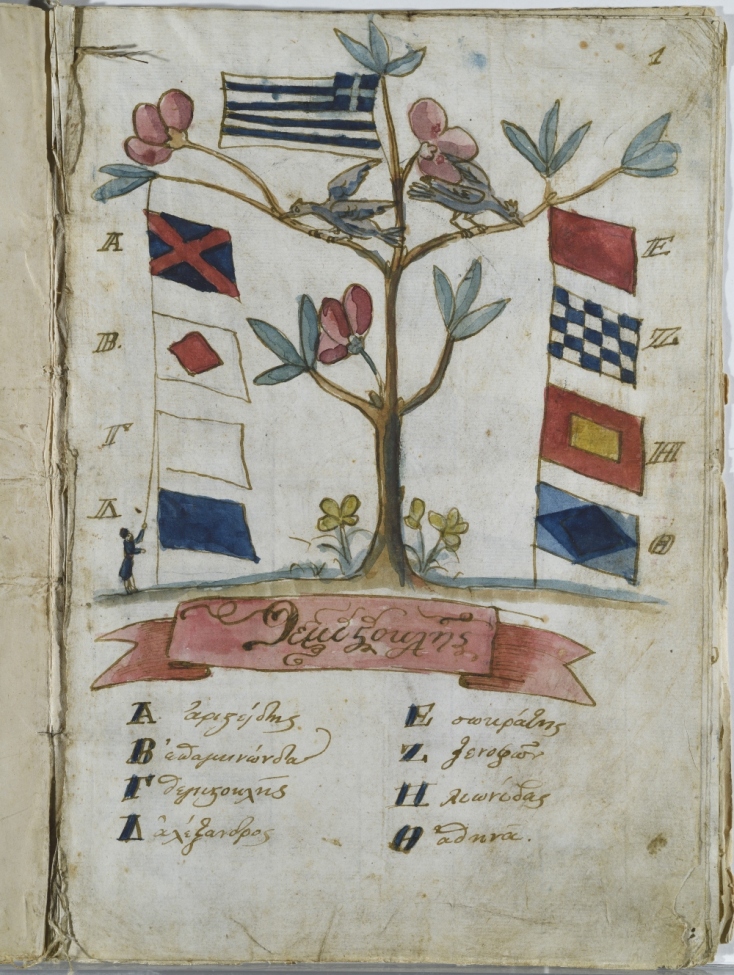 1
Α
Β
Γ
Δ
Ε
Ζ
Η
Θ
Θεμιστοκλῆς
Α ἀριστείδης
Β ἐπαμινώνδα
Γ θεμιστοκλῆς
Δ ἀλέξανδρος
Ε σωκράτης
Ζ ξενοφῶν
Η λεωνίδας
Θ ἀθηνᾶ.